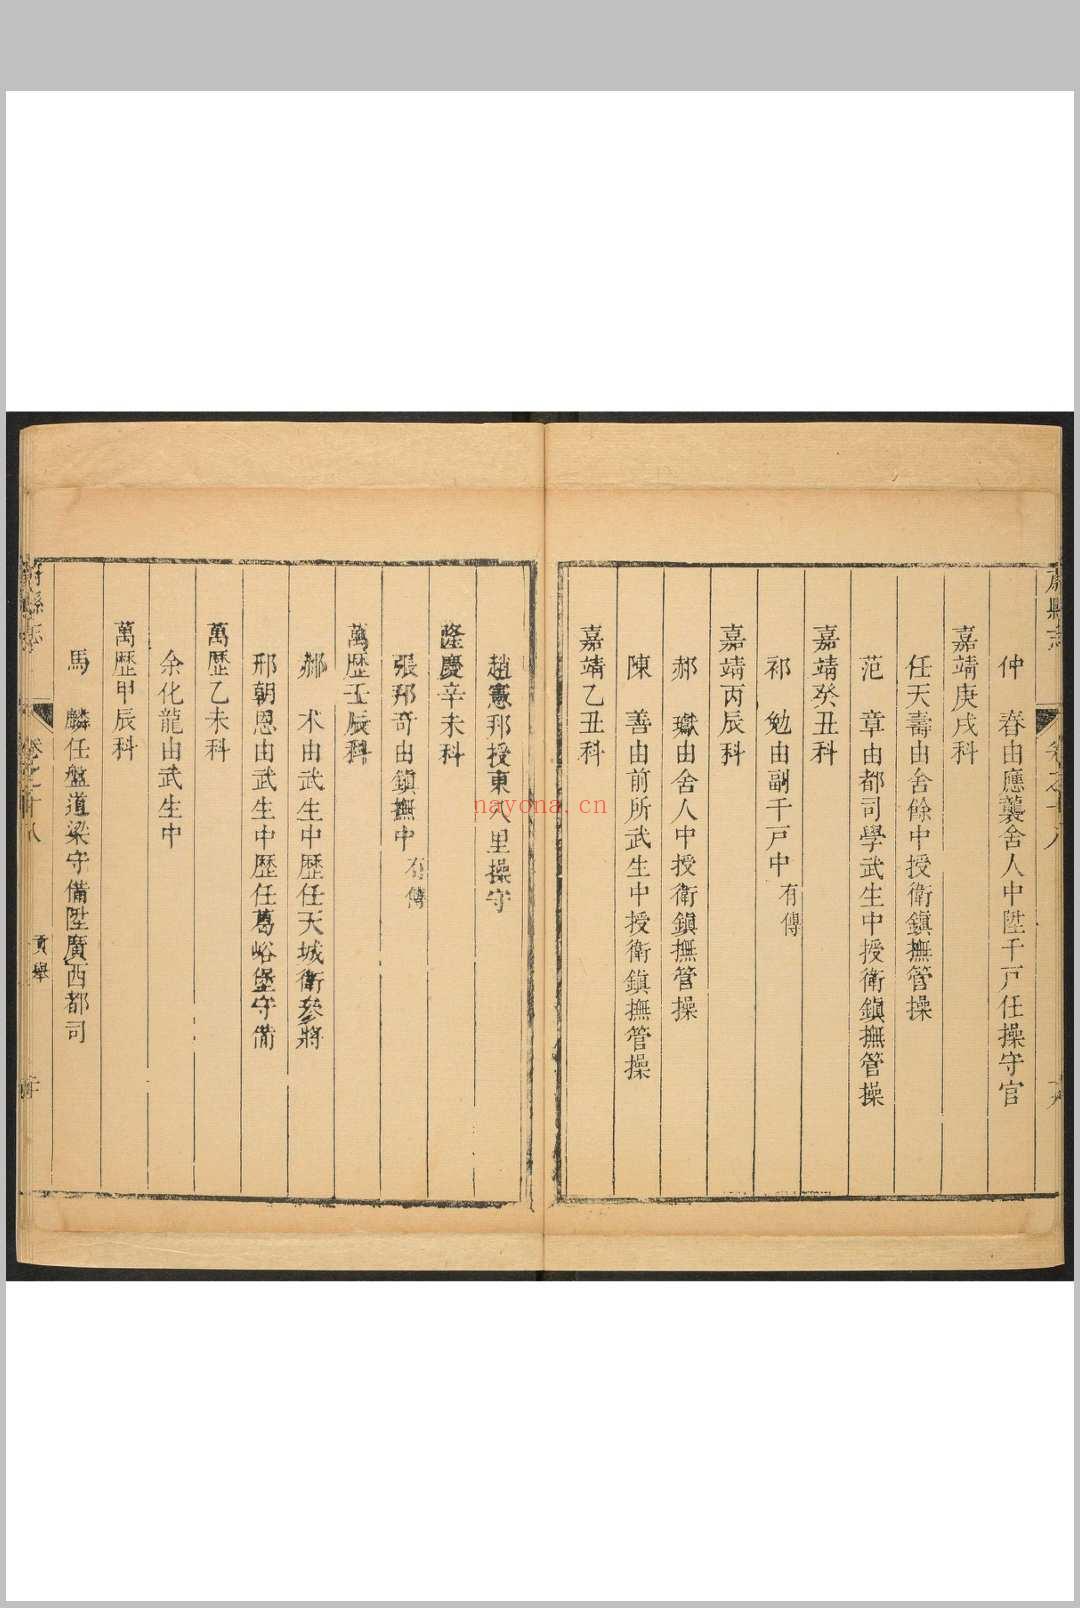 仲　春由應襲舍人中陞千戸任操守官
嘉靖庚戌科
任天壽由舍餘中授衛鎭撫管操
范　章由都司學武生中授衛鎭撫管操
嘉靖癸丑科
祁　勉由副千戸中有傳
嘉靖丙辰科
郝　由舍人中授衛鎭撫管操
陳　善由前所武生中授衛鎭撫管操
嘉靖乙丑科
趙憲邦授東八里操守
隆慶辛未科
張邦奇由鎭撫中有傳
萬歷壬辰科
郝　术由武生中歷任天城衛參將
邢朝恩由武生中歷任葛峪堡守備
萬歷乙未科
余化龍由武生中
萬歷甲辰科
馬　麟任盤道梁守備陞廣西都司
卷之十八
貢舉
nayona.cn